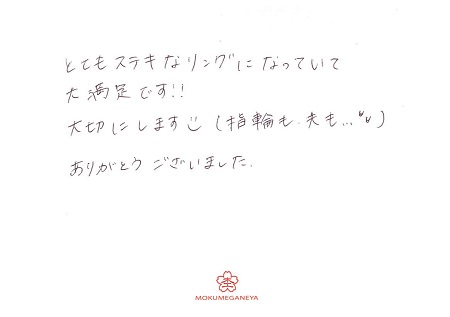 とてもステキなリングになっていて
大満足です!!
大切にします (指輪も、夫も...♥♥)
ありがとうございました。
MOKUMEGANEYA